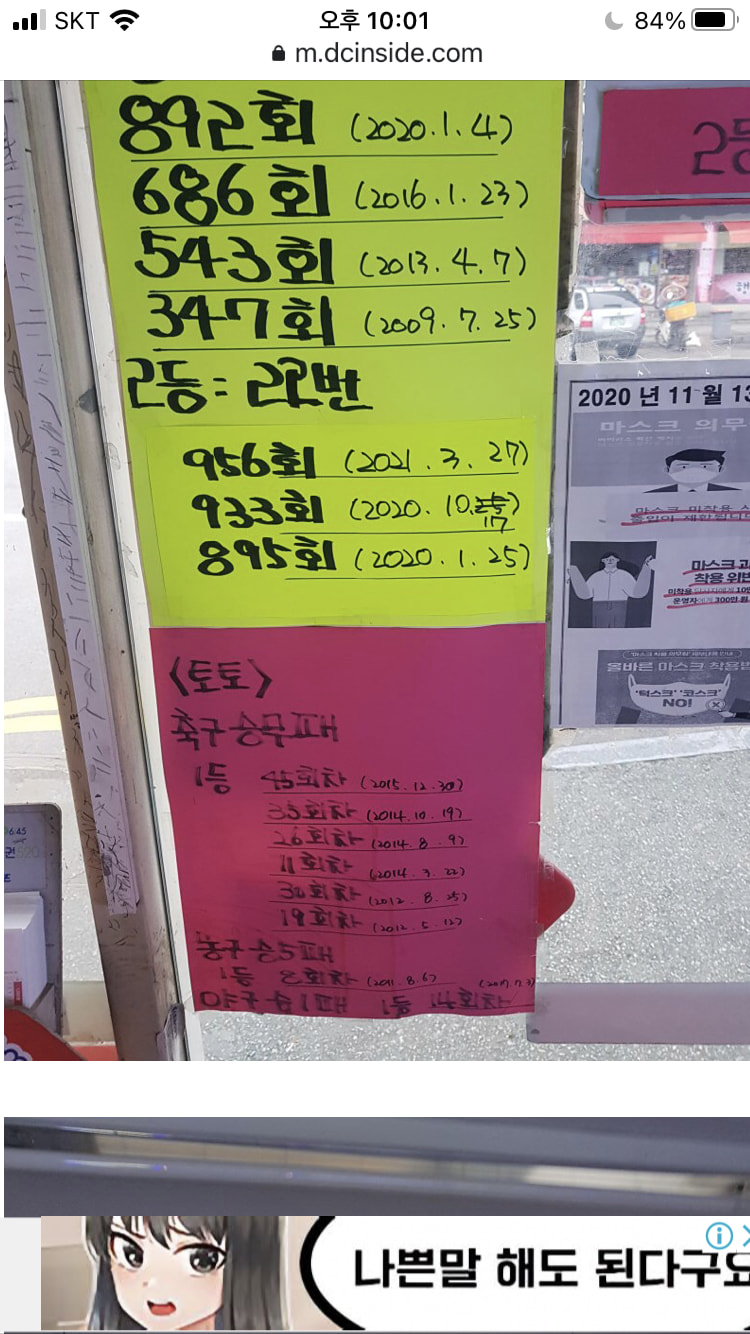 SKT 오후 10:01 84%
m.dcinside.com
892회 (2020.1.4)
686회 (2016.1.23)
543회 (2013.4.7)
347회 (2009.7.25)
2등: 22번
956회 (2021.3.27)
933회 (2020.10.
17)
895회 (2020.1.25)
<토토>
축구승무패
1등 45회차 (2015.12.30)
35회차 (2014.10.19)
26회차 (2014.8.9)
11회차 (2014.3.22)
30회차 (2012.8.25)
19회차 (2012.5.12)
농구승5패
1등 8회차 (2011.8.6)
야구승1패 1등 14회차
2등
2020 년 11 월 13
마스크 의무
올바른 마스크 착용
'턱스크' '코스크'
NO!
나쁜말 해도 된다구요